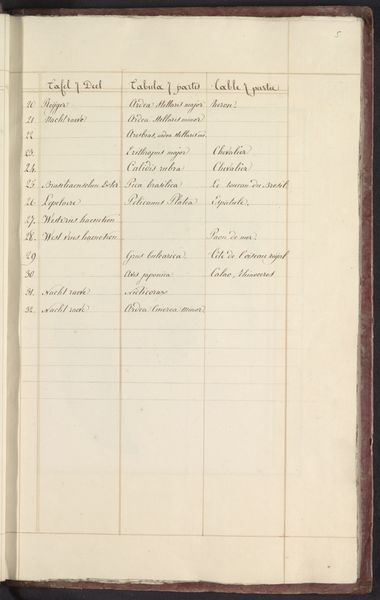 5
Tafel 7 Deel Tabula 7 partis Table 7 partie
20 Reijger Ardea Stellaris major heron.
21 Nacht rave Ardea Stellaris minor
22 Ardea Stellaris
23. Erithropus major Chevalier
24. Calidis rubra Chevalier
25 Brasiliaenschen Exter Pica brasilica Le toucan du Bresil
26 Lepelaire Pelicanus Platea Espatule.
27. West vries haenetien
28. West vries haenetien Paon de mer.
29 Grus balearica.
30 Avis japonica Calao, rhinoceros
31. Nacht rave Nicticorax
32. Nacht rave Ardea Cinerea minor